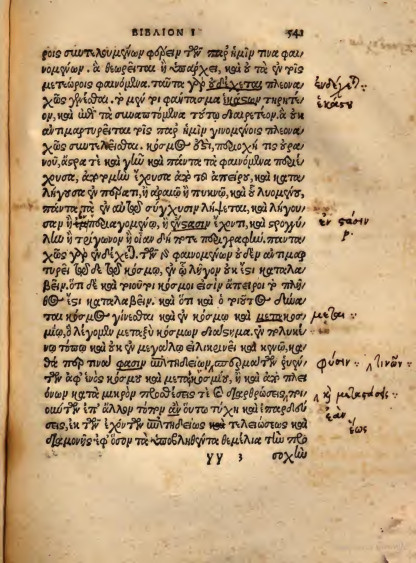 ΒΙΒΛΙΟΝ Ι 541
ροις συντελουμένων φέρειν τῶν παρ' ἡμῖν τινα φαι
νομένων. ἃ θεωρεῖται ἢ ὑπάρχει, καὶ οὐ τὰ ἐν τοῖς
μετεώροις φαινόμενα. ταῦτα γὰρ οὐδέχεται πλεονα
χῶς γενέσθαι. τὸ μέντοι φάντασμα ἑκάστων τηρητέ
ον, καὶ ἐπὶ τὰ συναπτόμενα τούτῳ διαιρετέον. ἃ οὐκ
ἀντιμαρτυρεῖται τοῖς παρ' ἡμῖν γινομένοις πλεονα
χῶς συντελεῖσθαι. κόσμος ἐστὶ, περιοχή τις οὐρα
νοῦ, ἄστρα τὲ καὶ γῆν καὶ πάντα τὰ φαινόμενα περιέ
χουσα, ἀποτομὴν ἔχουσα ἀπὸ τοῦ ἀπείρου, καὶ κατα
λήγουσα ἐν πέρατι, ἢ ἀραιῷ ἢ πυκνῷ, καὶ οὗ λυομένου,
πάντα τὰ ἐν αὐτῷ σύγχυσιν λήψεται, καὶ λήγου
σαν ἢ ἐν περιαγομένῳ, ἢ ἐν στάσιν ἔχοντι, καὶ στρογγύ
λην ἢ τρίγωνον ἢ οἵαν δή ποτε περιγραφήν. πανta
χῶς γὰρ ἐνδέχεται. τῶν δὲ φαινομένων οὐδὲν ἀντιμαρ
τυρεῖ τῷδε τῷ κόσμῳ, ἐν ᾧ λῆγον οὐκ ἔστι καταλα
βεῖν. ὅτι δὲ καὶ τοιοῦτοι κόσμοι εἰσὶν ἄπειροι τὸ πλῆ
θος ἔστι καταλαβεῖν. καὶ ὅτι καὶ ὁ τοιοῦτος δύνα
ται κόσμος γίνεσθαι καὶ ἐν κόσμῳ καὶ μετακοσ
μίῳ, ὃ λέγομεν μεταξὺ κόσμων διάστημα. ἐν πολυκέ
νῳ τόπῳ καὶ οὐκ ἐν μεγάλῳ εἰλικρινεῖ καὶ κενῷ, κα
θά πέρ τινα φασιν ἐπιτηδείων, σπερμάτων ῥυέν
των ἀφ' ἑνὸς κόσμου καὶ μετακοσμίου, ἢ καὶ ἀπὸ πλει
όνων κατὰ μικρὸν προσθέσεις τε καὶ διαρθρώσεις, ποι
ούντων ἐπ' ἄλλον τόπον ἂν οὕτω τύχη καὶ ἐπαρδεύ
σεις, ἐκ τῶν ἐχόντων ἐπιτηδείως καὶ τελειώσεως καὶ
διαμονῆς ἐφ' ὅσον τὰ ὑποβληθέντα θεμέλια τὴν προ
γγ 3 σοχὴν
ἐνδέχεται
ἑκάστου
ἐν στάσιν
μετα
φύσιν
τινῶν
καὶ μεταστάσεις
ἐὰν
ἕως